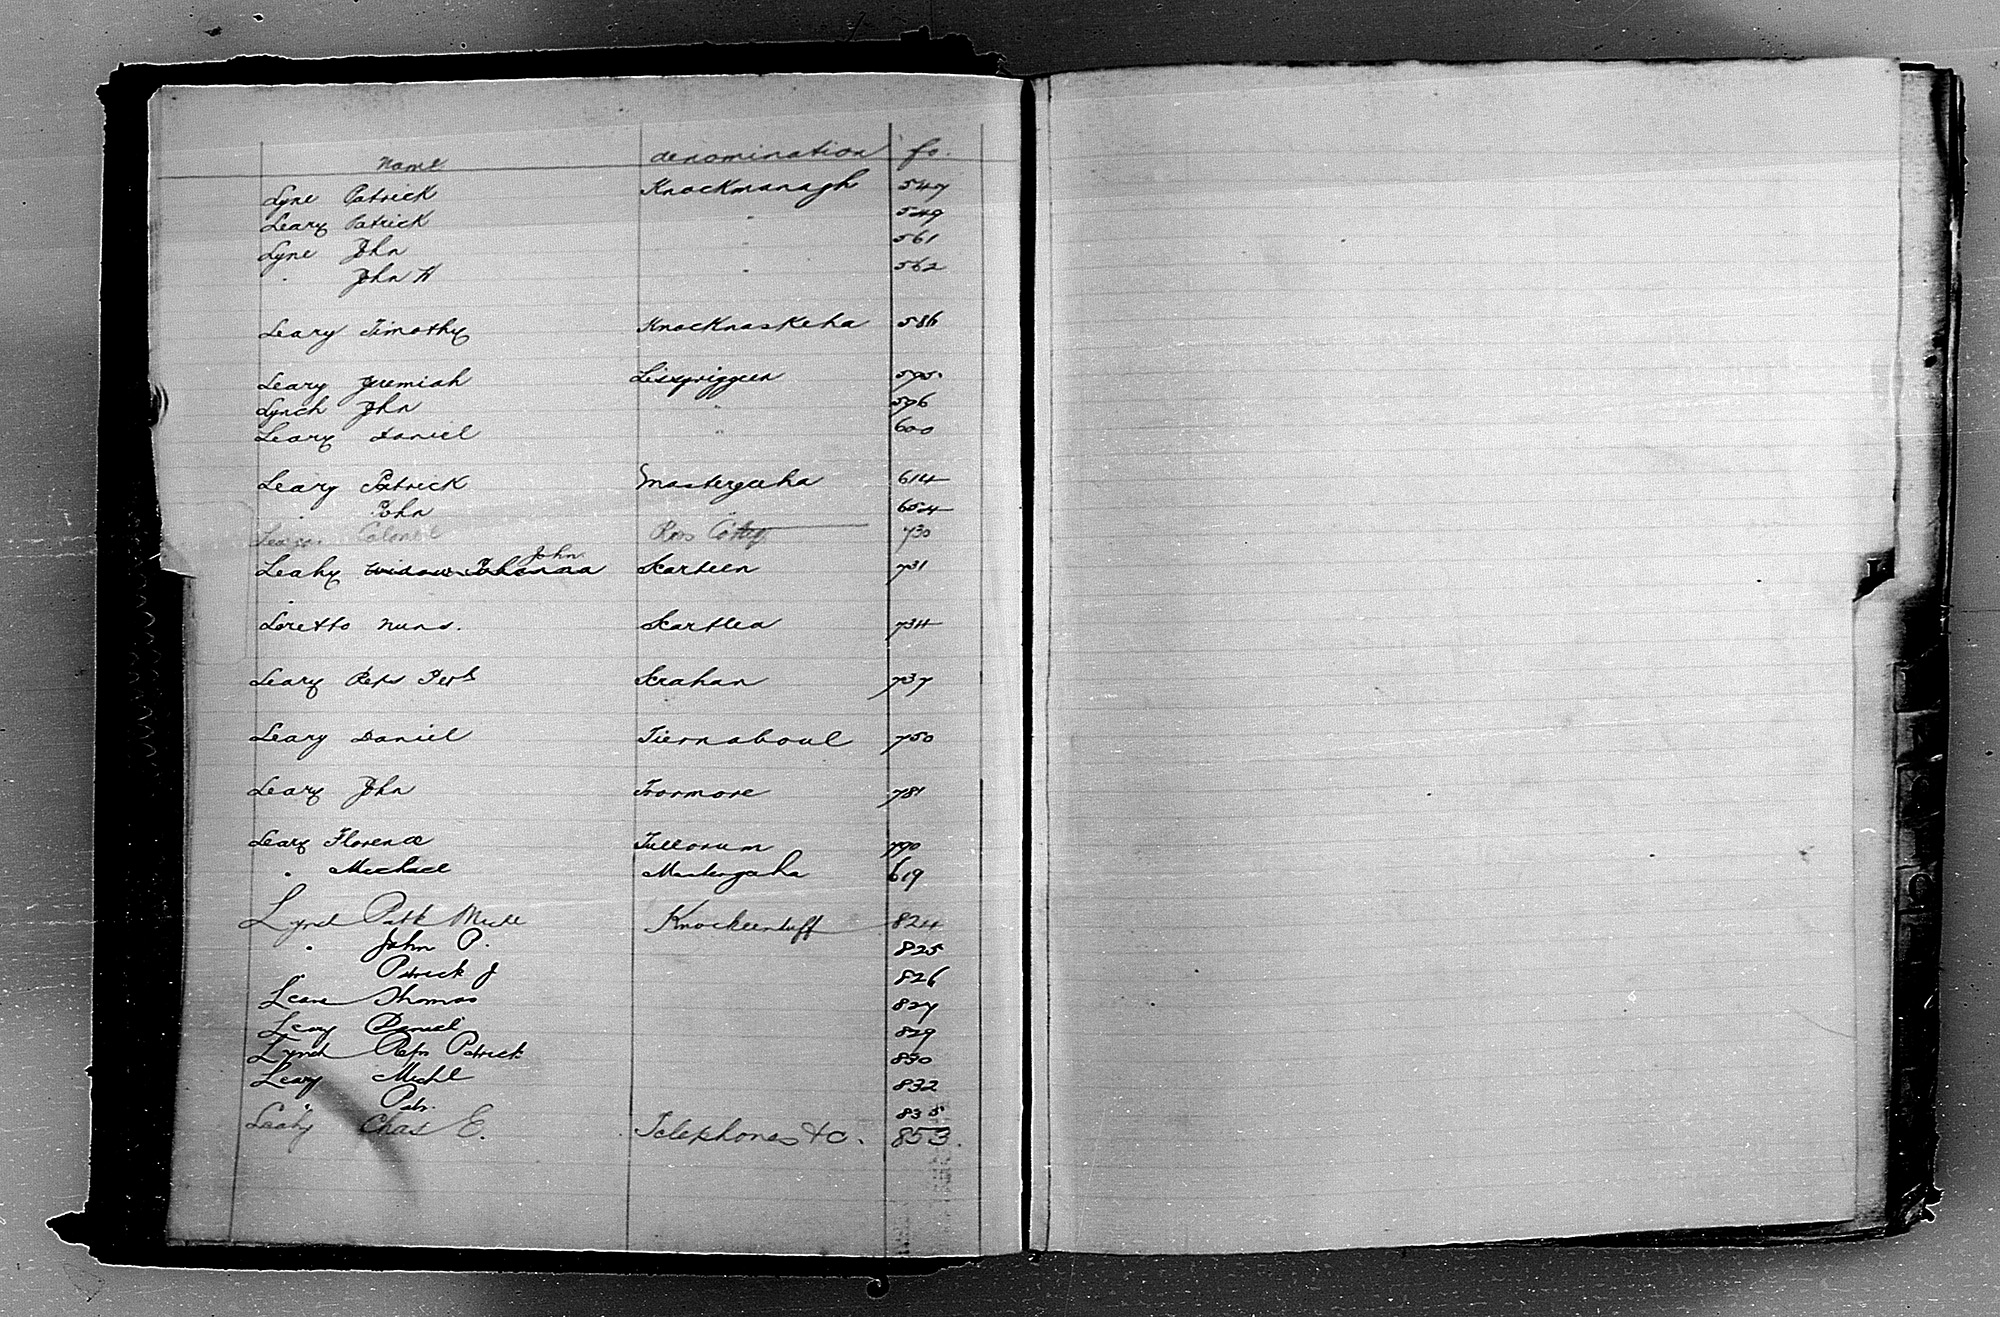 name denomination fo.
Lyne Patrick Knockmanagh 547
Leary Patrick " 549
Lyne John 561
" John H " 562
Leary Timothy Knocknaskeha 586
Leary Jeremiah Lissyviggeen 595
Lynch John " 596
Leary Daniel " 600
Leary Patrick Mastergeeha 614
" John " 654
Colonel Ross 730
John
Leahy widow Johanna Scarteen 731
Loretto nuns. Scartlea 734
Leary Reps Jerh Scrahan 737
Leary Daniel Tiernaboul 750
Leary John Toormore 781
Leary Florence Tullorum 790
" Michael Mastergeeha 619
Lynch Patk Michl Knockeenduff 824
" John P. 825
" Patrick J 826
Leane Thomas 827
Leary Daniel 829
Lynch Reps Patrick 830
Leary Michl 832
" Pat. 835
Leahy Chas E. Telephones &c. 853.